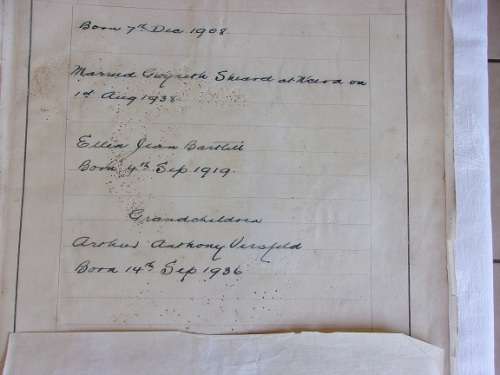 Born 7th Dec 1908.
Married Gwyneth Sheard at on
1st Aug 1938
Ellen Jean Bartlett
Born 4th Sep 1919.
Grandchildren
Arthur Anthony Versfeld
Born 14th Sep 1936